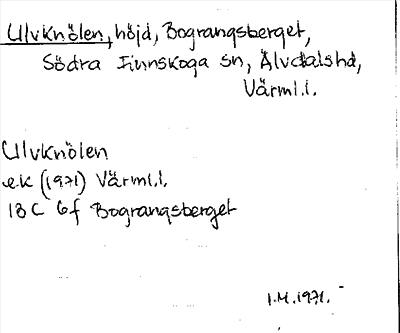 Ulvknölen, höjd, Bograngsberget,
Södra Finnskoga sn, Älvdals hd,
Värml.l.
Ulvknölen
e.k (1971) Värml.l.
18 C 6f Bograngsberget
I.M.1971.